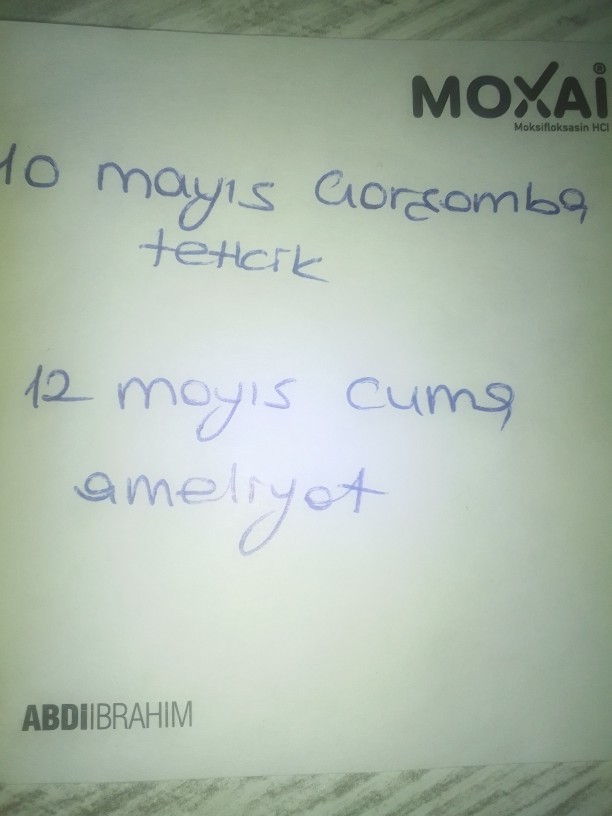 MOXAİ®
Moksifloksasin HCl
10 mayıs Çarşamba
tetkik
12 mayıs cuma
ameliyat
ABDİİBRAHİM